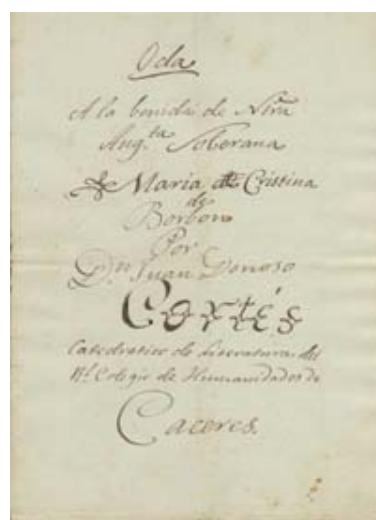 Oda
A la benida de Ntra
Aug.ta Soberana
Maria de Cristina
de
Borbon
Por
Dn Juan Donoso
Cortés
Catedratico de Literatura del
Rl Colegio de Humanidades de
Caceres.